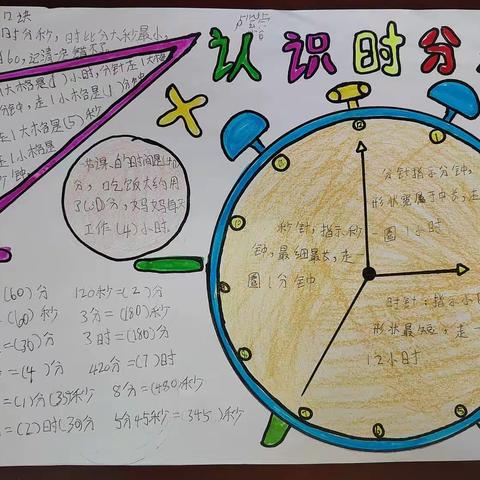 认识时分
口诀
时分秒,时比分大秒最小,
60,记清决错不了。
1大格是( )小时,分针走1大格
分钟,走1小格是(1)分钟
走1大格是(5)秒
走1小格是
秒钟。
一节课的时间是(40)
分,吃饭大约用
30(分),妈妈每天
工作(4)小时。
秒针,指示秒
钟,最细最长,走一
圈1分钟
分针指示分钟,
形状宽属于中长,走
圈1小时
时针:指示小
形状最短,走一
12小时
(60)分 120秒=(2)分
(60)秒 3分=(180)秒
=(30)分 3时=(180)分
=(4)分 420分=(7)时
=(1)分(35)秒 8分=(480)秒
=(2)时(30)分 5分45秒=(345)秒